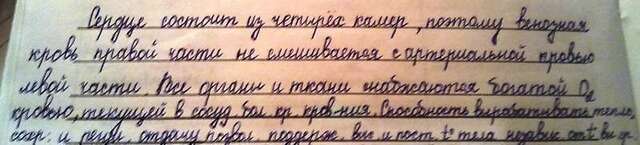 Сердце состоит из четырёх камер, поэтому венозная
кровь правой части не смешивается с артериальной кровью
левой части. Все органы и ткани снабжаются богатой O2
кровью, текущей в сосуд. бол. кр. кров-ния. Способность вырабатывать тепло,
сохр. и регул. отдачу позвол. поддерж. выс и пост. t° тела независ. от t°